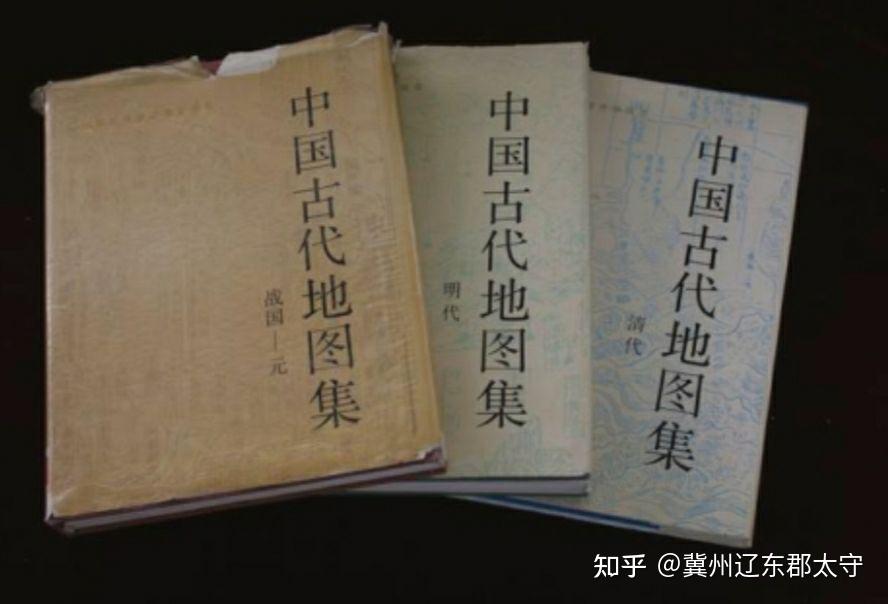 中国古代地图集
战国—元
中国古代地图集
明代
中国古代地图集
清代
知乎 @冀州辽东郡太守